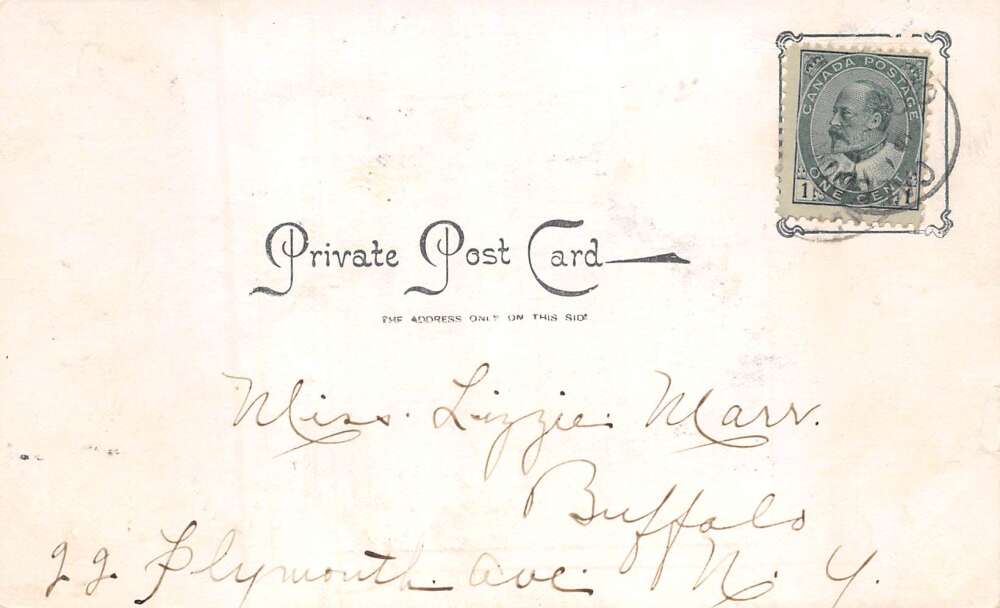 CANADA POSTAGE
ONE CENT
1 1
Private Post Card
THE ADDRESS ONLY ON THIS SIDE
Miss. Lizzie. Marr.
Buffalo
99 Plymouth. Ave. N. Y.